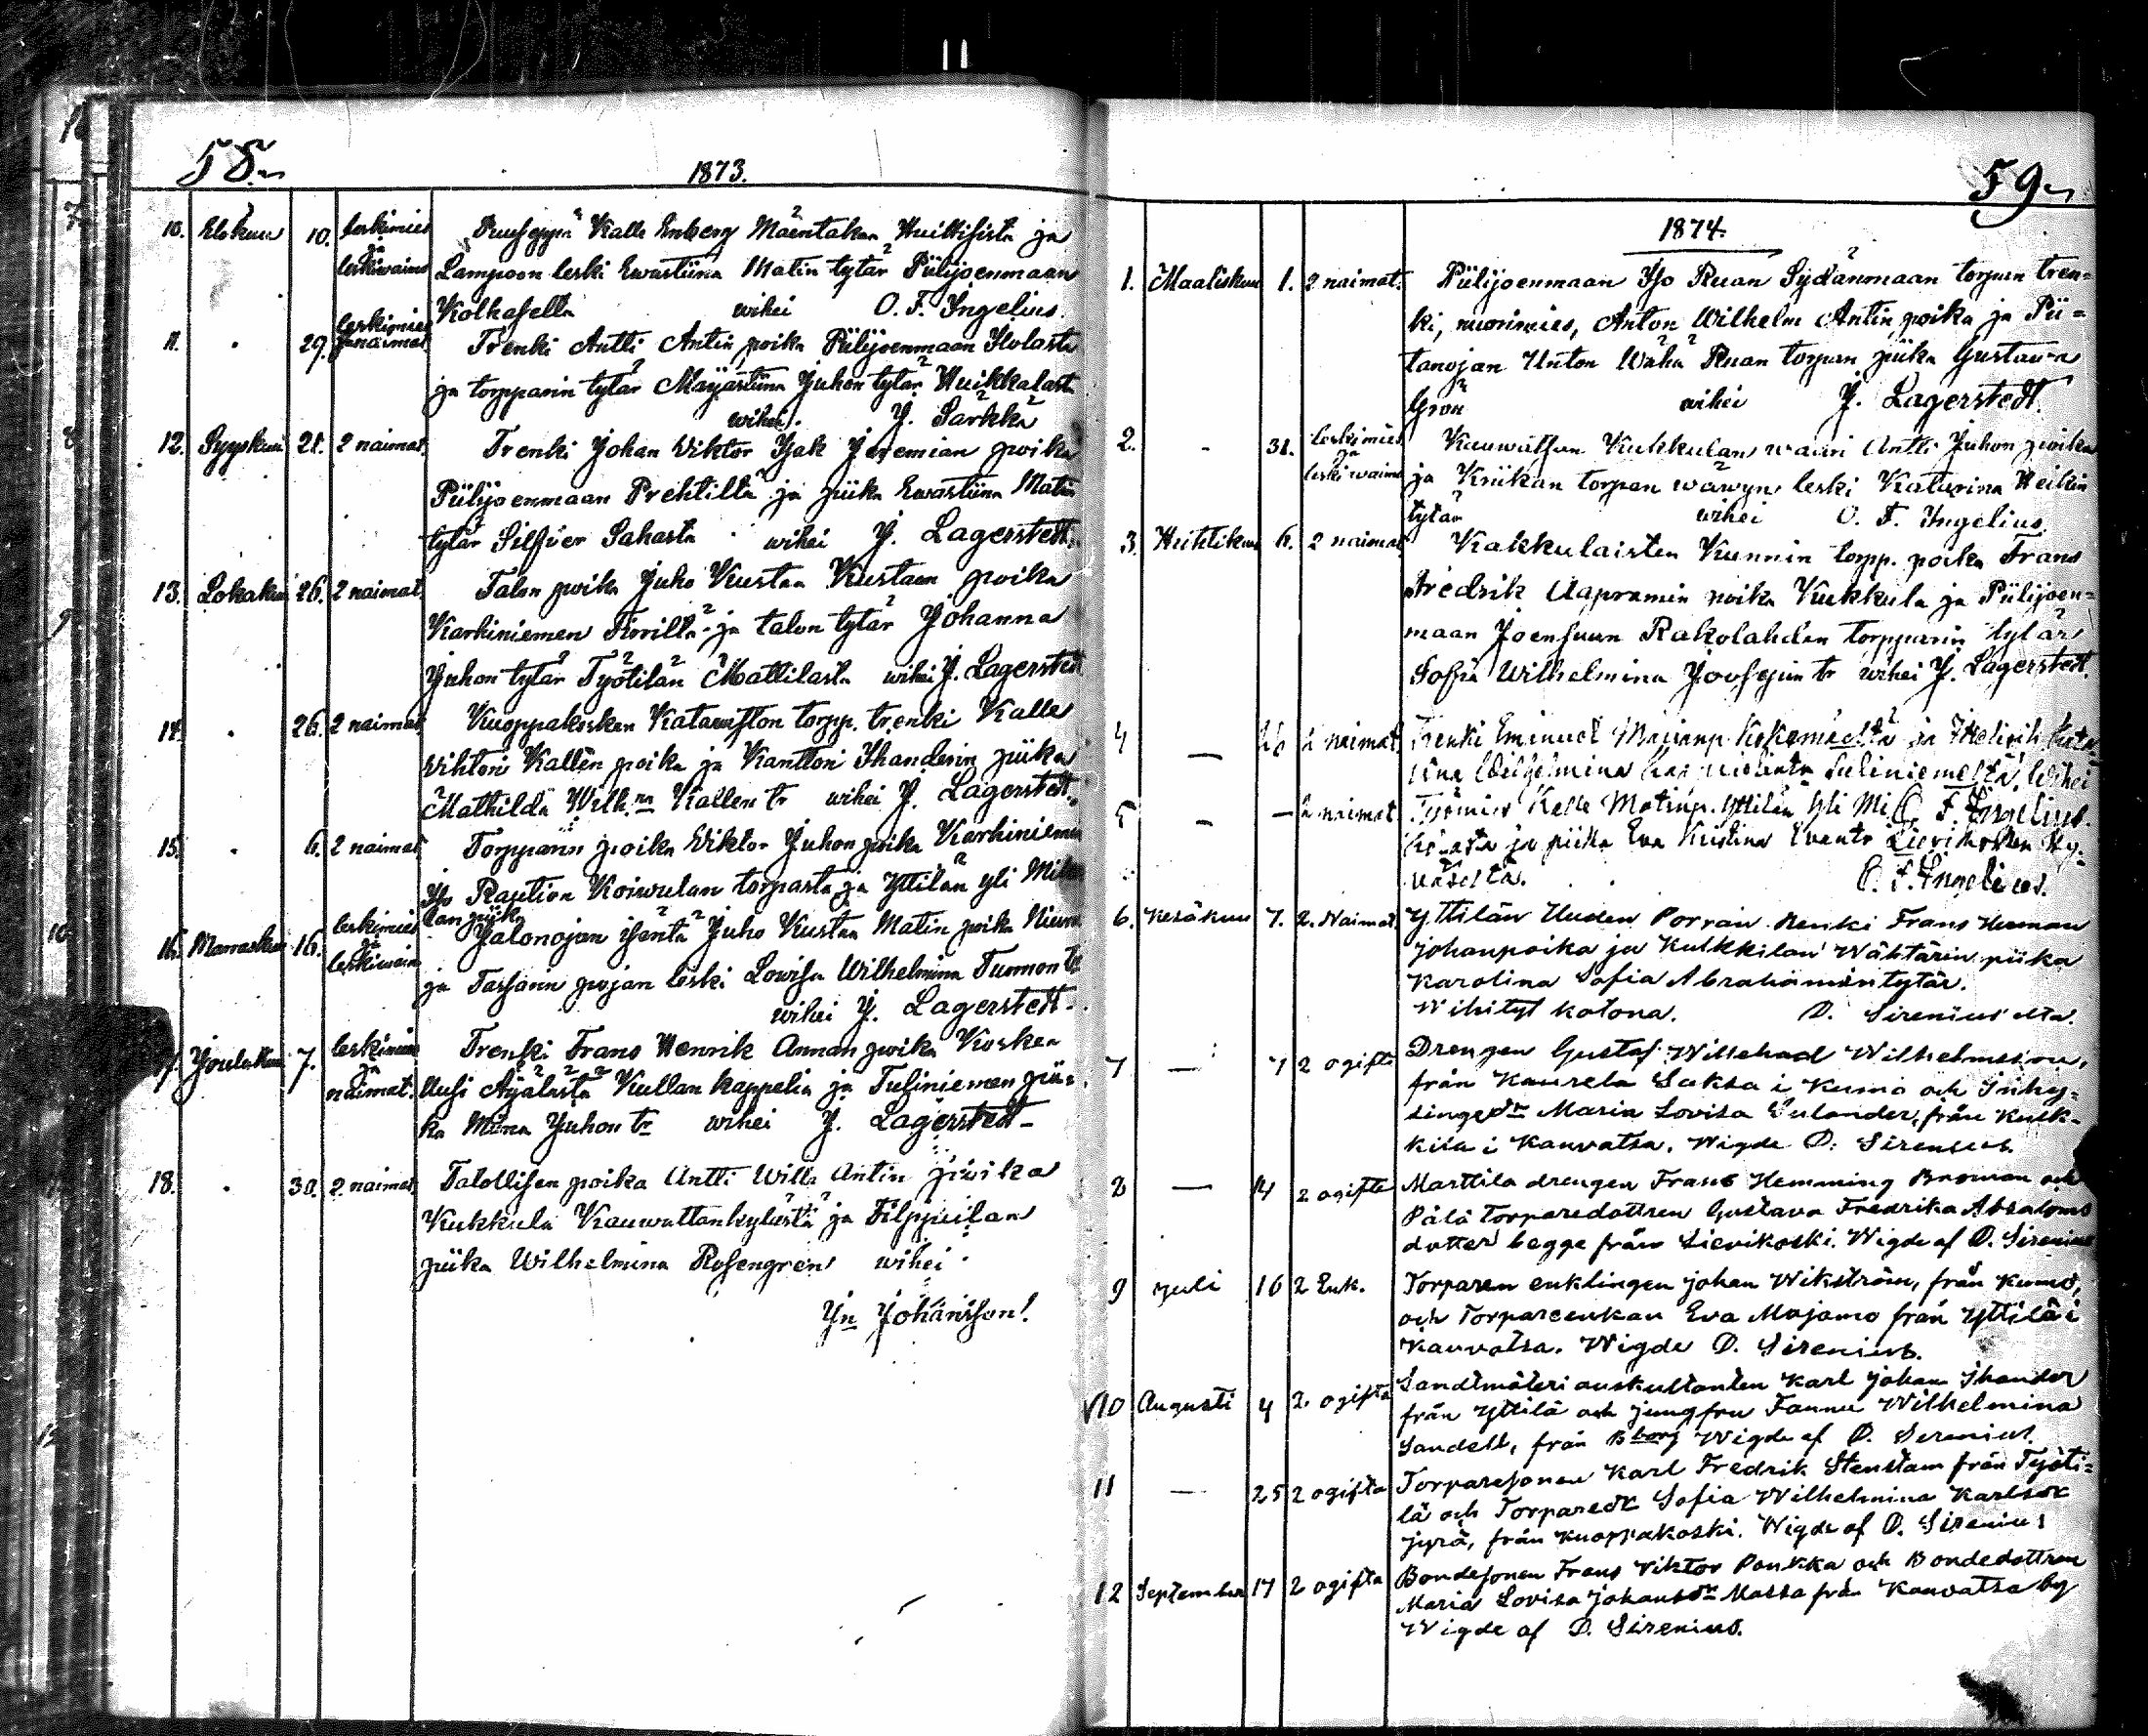 58.
1873.
10. Elokuu 10. leskimies ja leskiwaimo Puuseppä Kalle Enberg Mäentakan Huittisista ja
Lampoon leski Ewastiina Matin tytär Piilijoenmaan
Kolkasella wihei O. F. Ingelius.
11. 29. leskimies ja naimat. Trenki Antti Antin poika Piilijoenmaan Ilolasta
ja torpparin tytär Mayastiina Juhon tytär Huikkalasta
wihei. J. Särkkä
12. Syyskuu 21. 2 naimat. Trenki Johan Viktor Isak Jeremian poika
Piilijoenmaan Prehtiltä ja piika Ewastiina Matin
tytär Silfver Sahasta wihei J. Lagerstedt.
13. Lokakuu 26. 2 naimat. Talon poika Juho Kustaa Kustaan poika
Karhiniemen ja talon tytär Johanna
Juhon tytär Työtilän Mattilasta wihei J. Lagerstedt
14. 26. 2 naimat. Kuoppakosken torpp. trenki Kalle
Vihtori Kallen poika ja Kanttori Ihanderin piika
Mathilda Wilh:na Kallen tr wihei J. Lagerstedt.
15. 6. 2 naimat. Torpparin poika Viktor Juhon poika Karhiniemen
Iso Raution Koiwulan torpasta ja Yttilän yli
lan piika
16. Marraskuu 16. leskimies ja leskiwaim Jalonojan isäntä Juho Kustaa Matin poika
ja pojan leski Lowisa Wilhelmina Tuomon tr
wihei J. Lagerstedt.
17. Joulukuu 7. leskimies ja naimat. Trenki Frans Henrik Annan poika Kosken
Uusi Äijälästä Kullan kappelia ja Tuliniemen pii-
ka Miina Juhon tr wihei J. Lagerstedt
18. 30. 2 naimat. Talollisen poika Antti Wille Antin poika
Kukkula Kauwattankylästä ja Filppulan
piika Wilhelmina Rosengren wihei
Yn Johansson!
59.
1874.
1. Maaliskuu 1. 2 naimat. Piilijoenmaan Iso Ruan Sydänmaan torpan tren-
ki, nuorimies, Anton Wilhelm Antin poika ja Pii-
tanojan Unton Wähä Ruan torpan piika Gustawa
Grön wihei J. Lagerstedt.
2. - 31. leskimies ja leski waimo Kauwatsan Kukkulan waari Antti Juhon poika
ja Kriikan torpan wäwyn leski Katarina Heikin
tytär wihei O. F. Ingelius.
3. Huhtikuu 6. 2 naimat Kakkulaisten Kunnin torpp. poika Frans
Fredrik Aapramin poika Kukkula ja Piilijoen-
maan Joensuun Rakolahden torpparin tytär
Sofia Wilhelmina Joosepin tr wihei J. Lagerstedt.
4 — 26 2 naimat. Trenki Emanuel Kokemäeltä ja
Wilhelmina Tuliniemestä. Wihei
5 — — 2 naimat. Kalle Matinp. Yttilän Yli O. F. Ingelius.
ja piika Eva Kristina Lievikosken
O. F. Ingelius.
6. Kesäkuu 7. 2. Naimat. Yttilän Uuden Porran Renki Frans Herman
Johanpoika ja Kulkkilan Wähtärin piika
Karolina Sofia Abrahamintytär.
Wihityt kotona. D. Sirenius'elta.
7 — 7 2 ogifta Drengen Gustaf Willehad Wilhelmsson,
från Kaurela Saksa i Kumo och Inhy-
singedr Maria Lovisa Sulander, från Kulk-
kila i Kauvatsa. Wigde D. Sirenius.
8 — 14 2 ogifta Marttila drengen Frans Hemming Broman och
Pälä Torparedottren Gustava Fredrika Absaloms
dotter begge från Lievikoski. Wigde af D. Sirenius
9 Juli 16 2 Enk. Torparen enklingen Johan Wikström, från Kumo,
och Torpareenkan Eva Majamo från Yttilä i
Kauvatsa. Wigde D. Sirenius.
10 Augusti 4 2 ogifta Landtmäteri auskultanten Karl Johan Ihander
från Yttilä och jungfru Fanni Wilhelmina
Sandell, från Bborg Wigde af D. Sirenius.
11 — 25 2 ogifta Torparesonen Karl Fredrik Stenstam från Työti-
lä och Torparedr Sofia Wilhelmina Karlsdr
Jyrä, från Kuoppakoski. Wigde af D. Sirenius
12 September 17 2 ogifta Bondesonen Frans Viktor Paukka och Bondedottren
Maria Lovisa Johansdr Massa från Kauvatsa by
Wigde af D. Sirenius.